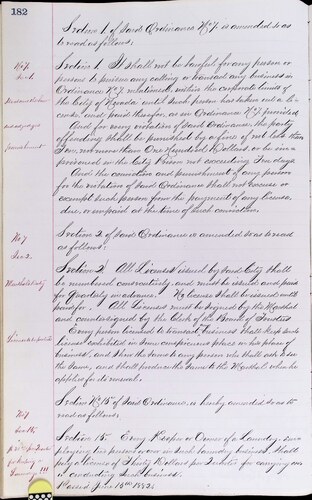 182
Section 1. of Said Ordinance No 7. is amended so as
to read as follows;
No 7.
Sec 1.
Section 1. It shall not be lawful for any person or
persons to pursue any calling or transact any business in
Ordinance No 7. mentioned, within the corporate limits of
the City of until such person has taken out a li-
cense and paid therefor, as in Ordinance No 7. provided
And for every violation of Said Ordinance the party
offending shall be punished by a fine of not less than
Five, nor more than One Hundred Dollars, or be im-
prisoned in the City Prison not exceeding Ten days.
And the conviction and punishment of any person
for the violation of Said Ordinance shall not excuse or
exempt such person from the payment of any license,
due, or unpaid at the time of such conviction.
punishment
No 7
Sec 2.
Section 2 of Said Ordinance is amended so as to read
as follows:
Section 2. All Licenses issued by Said City shall
be numbered consecutively, and must be issued and paid
for Quarterly in advance. No license shall be issued until
paid for. All Licenses must be signed by the Marshal
and countersigned by the Clerk of the Board of Trustees
Every person licensed to transact business shall keep such
license exhibited in some conspicuous place in his place of
business, and show the same to any person who shall ask to see
the same, and shall produce the same to the Marshal when he
applies for its renewal.
No 7
Sec 15.
Section No. 15 of Said Ordinance, is hereby amended so as to
read as follows.
Section 15. Every Keeper or Owner of a Laundry, em-
ploying two persons or over in such laundry business, shall
pay a license of Thirty Dollars per Quarter for carrying on
or conducting such business.
Passed June 15th 1882.